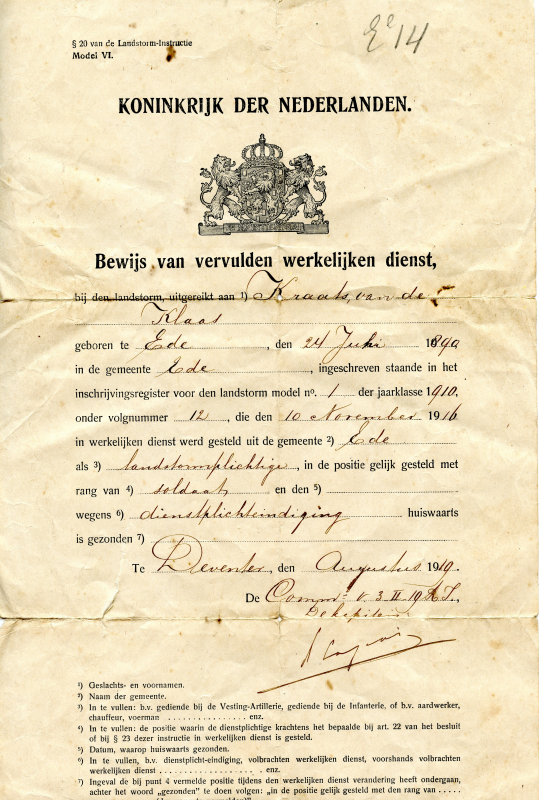 § 20 van de Landstorm-Instructie
Model VI.
14
KONINKRIJK DER NEDERLANDEN.
Bewijs van vervulden werkelijken dienst,
bij den landstorm, uitgereikt aan ¹) Kraats, van de
Klaas
geboren te Ede, den 24 1890
in de gemeente Ede, ingeschreven staande in het
inschrijvingsregister voor den landstorm model nº. 1 der jaarklasse 1910,
onder volgnummer 12, die den 10 November 1916
in werkelijken dienst werd gesteld uit de gemeente ²) Ede
als ³) landstormplichtige, in de positie gelijk gesteld met
rang van ⁴) soldaat en den ⁵)
wegens ⁶) dienstplichteindiging huiswaarts
is gezonden ⁷)
Te Deventer, den Augustus 1919.
De Commt v. 3 II 19 R.I.,
De kapitein
¹) Geslachts- en voornamen.
²) Naam der gemeente.
³) In te vullen: b.v. gediende bij de Vesting-Artillerie, gediende bij de Infanterie, of b.v. aardwerker,
chauffeur, voerman ................ enz.
⁴) In te vullen: de positie waarin de dienstplichtige krachtens het bepaalde bij art. 22 van het besluit
of bij § 23 dezer instructie in werkelijken dienst is gesteld.
⁵) Datum, waarop huiswaarts gezonden.
⁶) In te vullen, b.v. dienstplicht-eindiging, volbrachten werkelijken dienst, voorshands volbrachten
werkelijken dienst ..................... enz.
⁷) Ingeval de bij punt 4 vermelde positie tijdens den werkelijken dienst verandering heeft ondergaan,
achter het woord „gezonden” te doen volgen: „in de positie gelijk gesteld met den rang van .....